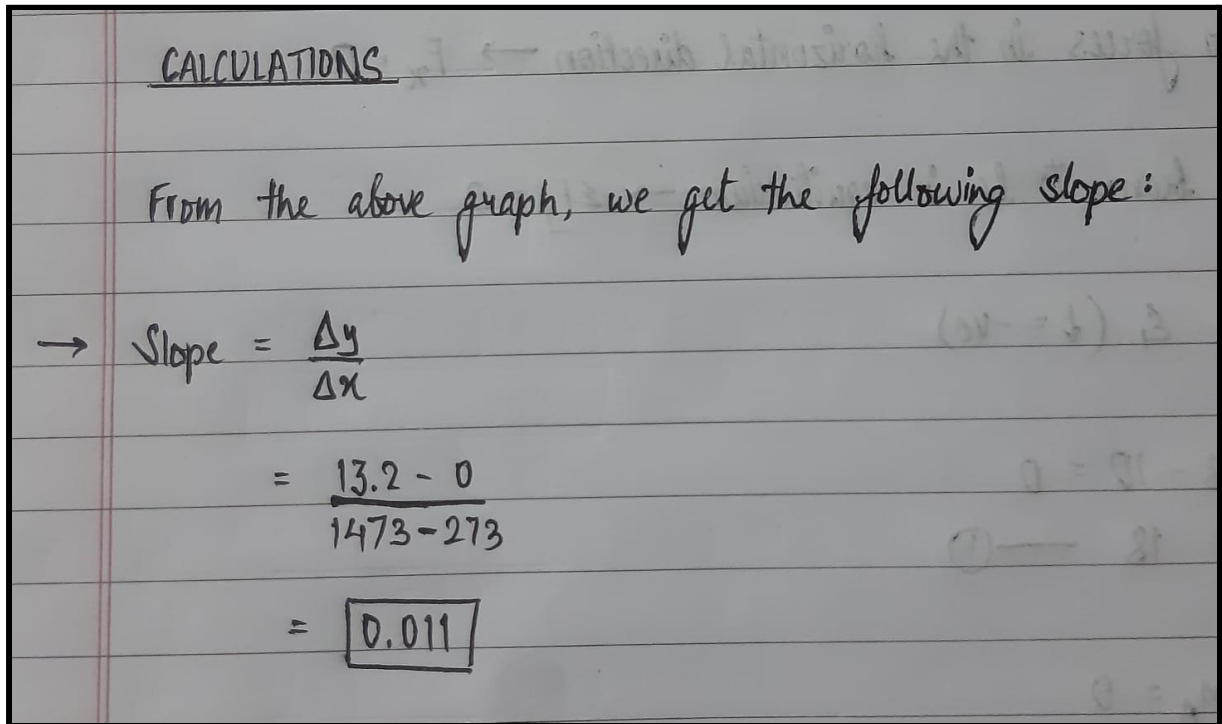 CALCULATIONS
From the above graph, we get the following slope :
→ Slope = Δy
Δx
= 13.2 - 0
1473-273
= 0.011